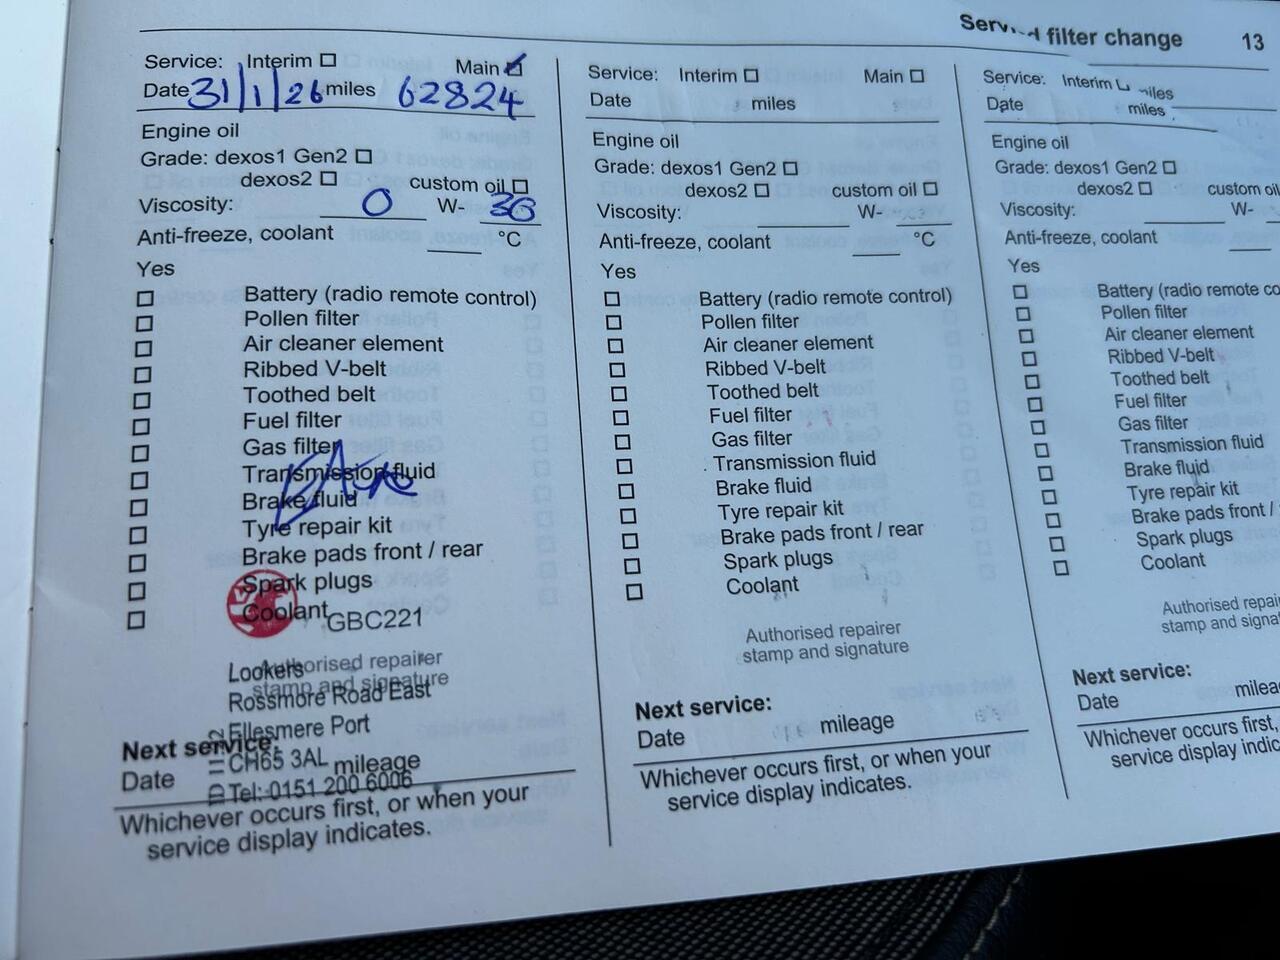 filter change 13
Service: Interim Main
Date 31/1/26 miles 62824
Engine oil
Grade: dexos1 Gen2
dexos2 custom oil
Viscosity: 0 W- 30
Anti-freeze, coolant °C
Yes
Battery (radio remote control)
Pollen filter
Air cleaner element
Ribbed V-belt
Toothed belt
Fuel filter
Gas filter
Transmission fluid
Brake fluid
Tyre repair kit
Brake pads front / rear
Spark plugs
Coolant
GBC221
Authorised repairer
stamp and signature
Lookers
Rossmore Road East
Ellesmere Port
CH65 3AL
Tel: 0151 200 6006
Next service:
Date mileage
Whichever occurs first, or when your
service display indicates.
Service: Interim Main
Date miles
Engine oil
Grade: dexos1 Gen2
dexos2 custom oil
Viscosity: W-
Anti-freeze, coolant °C
Yes
Battery (radio remote control)
Pollen filter
Air cleaner element
Ribbed V-belt
Toothed belt
Fuel filter
Gas filter
Transmission fluid
Brake fluid
Tyre repair kit
Brake pads front / rear
Spark plugs
Coolant
Authorised repairer
stamp and signature
Next service:
Date mileage
Whichever occurs first, or when your
service display indicates.
Service: Interim miles
Date miles
Engine oil
Grade: dexos1 Gen2
dexos2 custom oil
Viscosity: W-
Anti-freeze, coolant
Yes
Battery (radio remote co
Pollen filter
Air cleaner element
Ribbed V-belt
Toothed belt
Fuel filter
Gas filter
Transmission fluid
Brake fluid
Tyre repair kit
Brake pads front /
Spark plugs
Coolant
Authorised repai
stamp and signa
Next service:
Date milea
Whichever occurs first,
service display indic